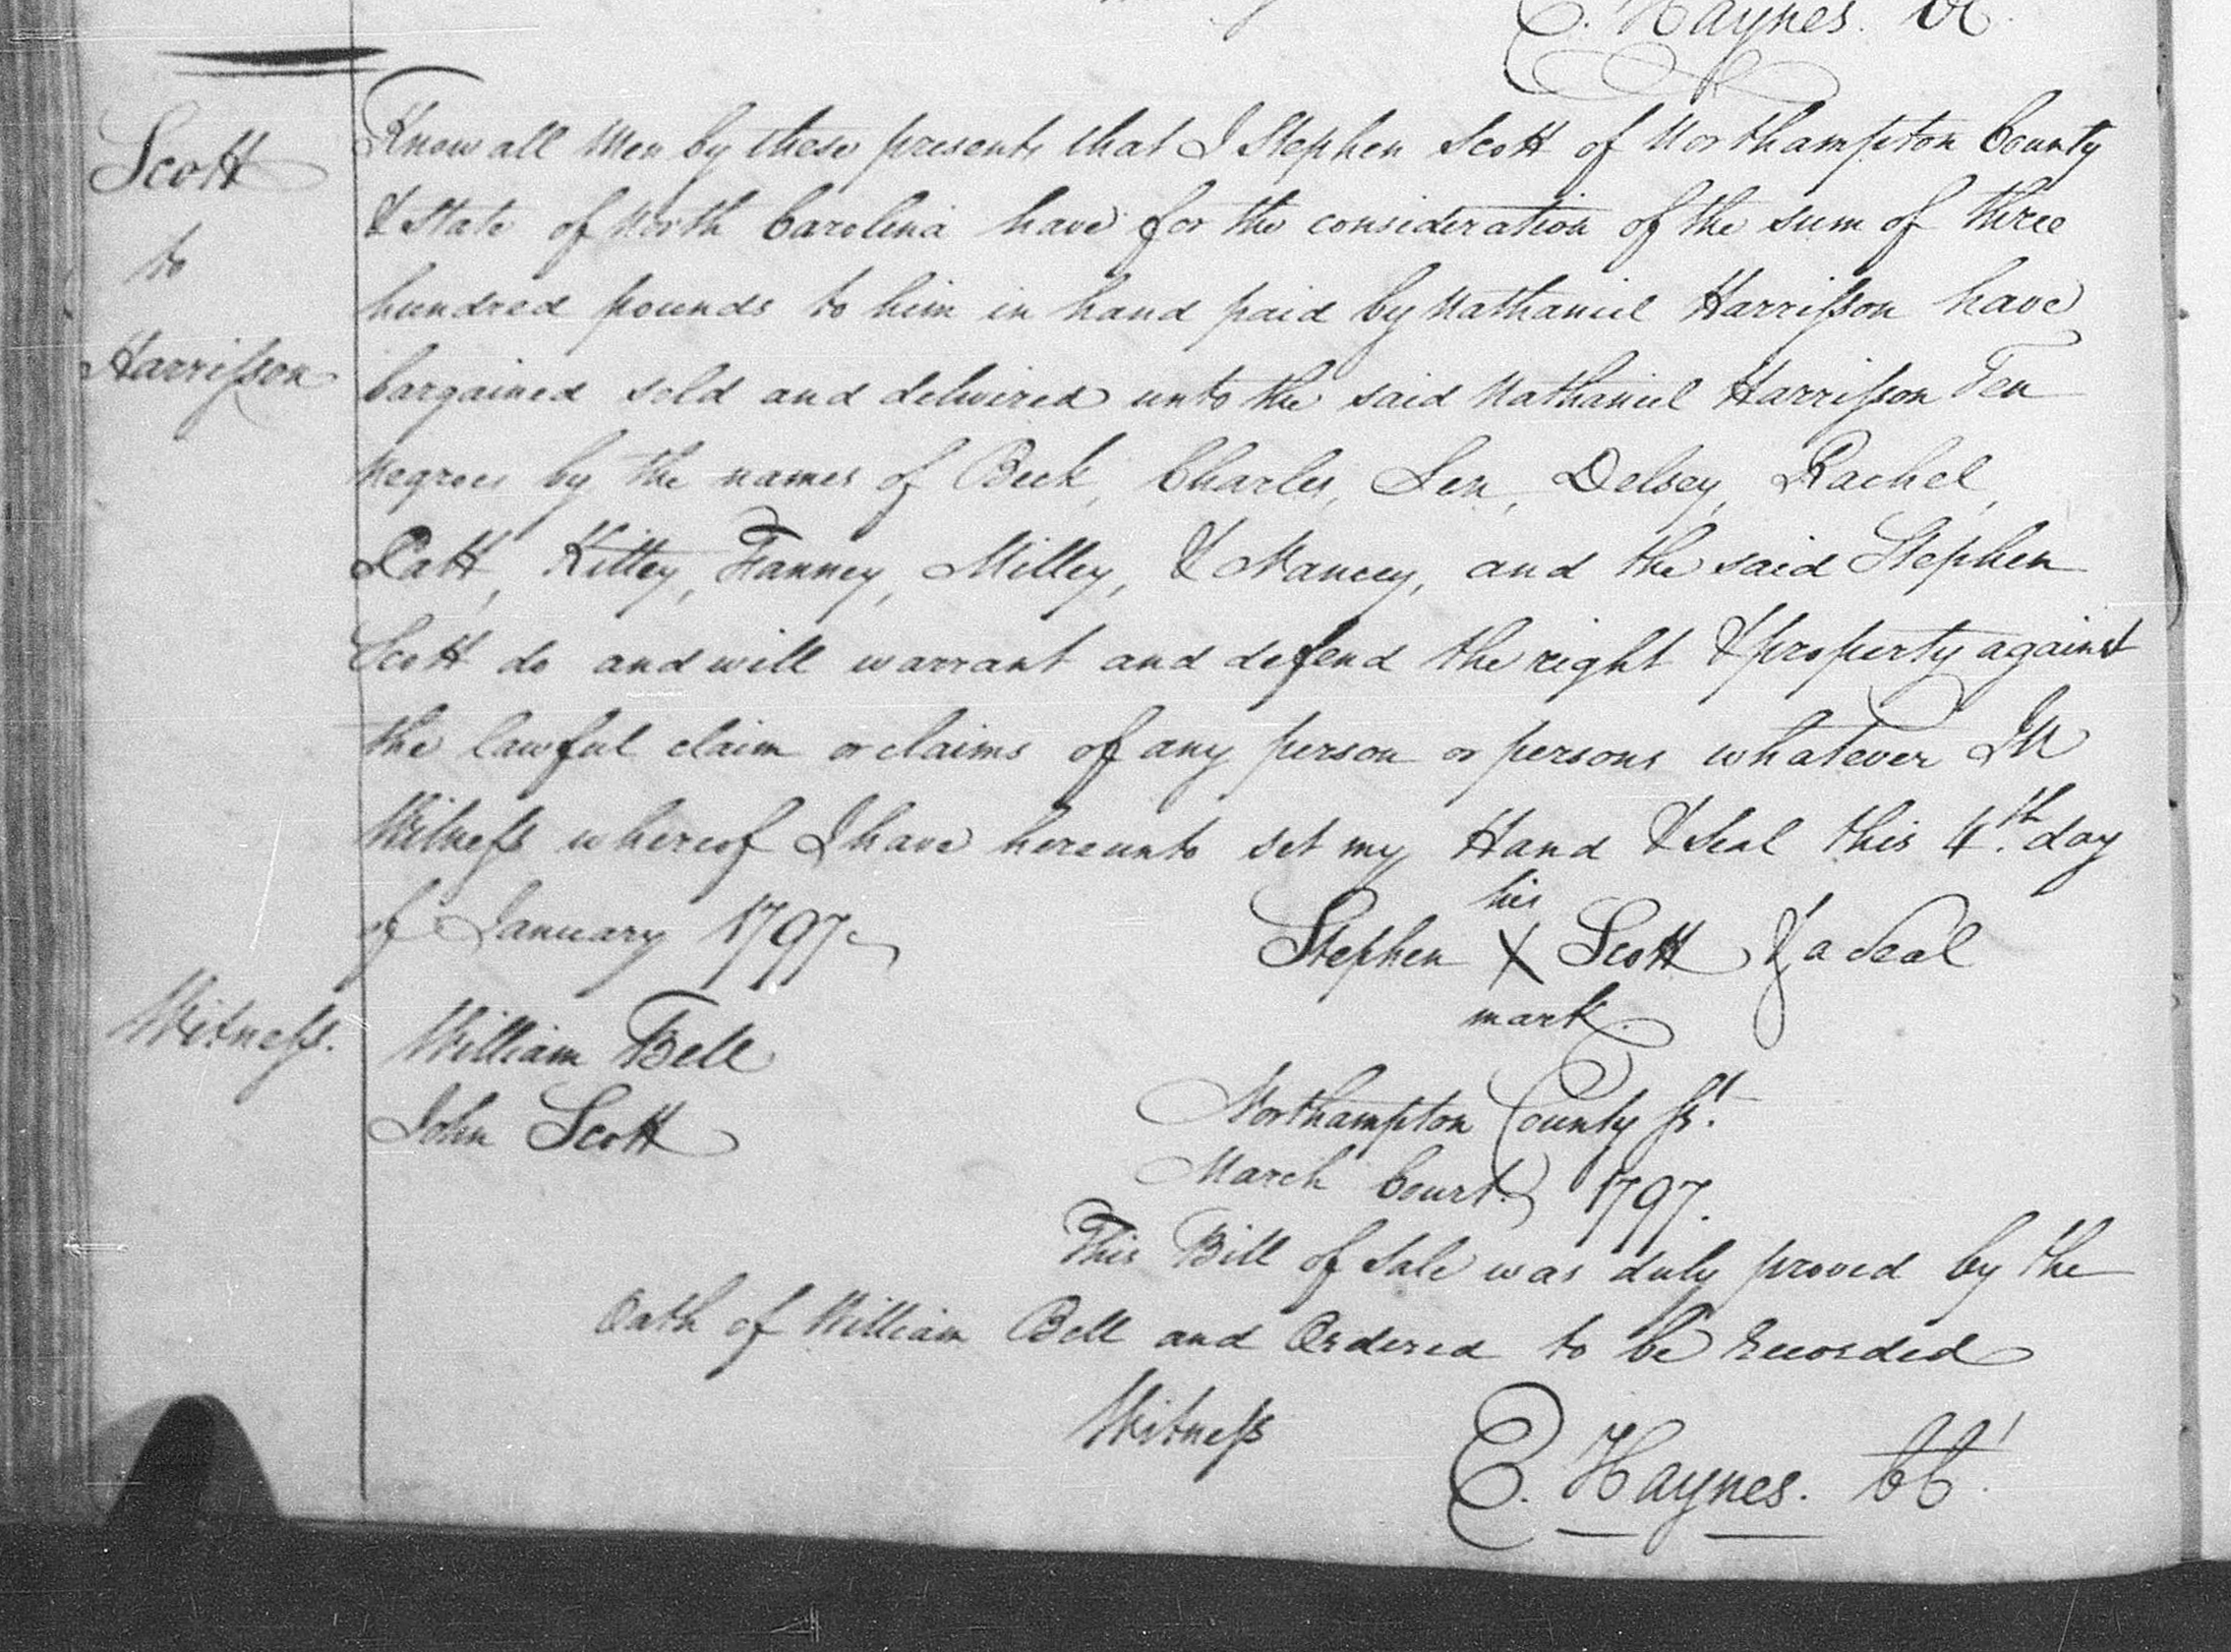 E. Haynes. CC.
Scott
to
Harrisson
Know all Men by these presents that I Stephen Scott of Northampton County
& State of North Carolina have for the consideration of the sum of three
hundred pounds to him in hand paid by Nathaniel Harrisson have
bargained sold and delivered unto the said Nathaniel Harrisson Ten
Negroes by the names of Beck, Charles, Sen, Delsey, Rachel,
Patt, Kittey, Fanney, Milley, & Nancey, and the said Stephen
Scott do and will warrant and defend the right & property against
the lawful claim or claims of any person or persons whatever In
Witness whereof I have hereunto set my Hand & Seal this 4th. day
of January 1797.
his
Stephen X Scott & a Seal
mark
Witness. William Bell
John Scott
Northampton County Sst.
March Court 1797.
This Bill of Sale was duly proved by the
Oath of William Bell and Ordered to be Recorded
Witness
E. Haynes. CC.